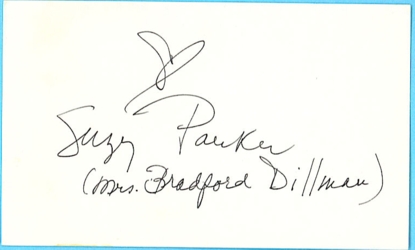 Suzy Parker
(Mrs. Bradford Dillman)